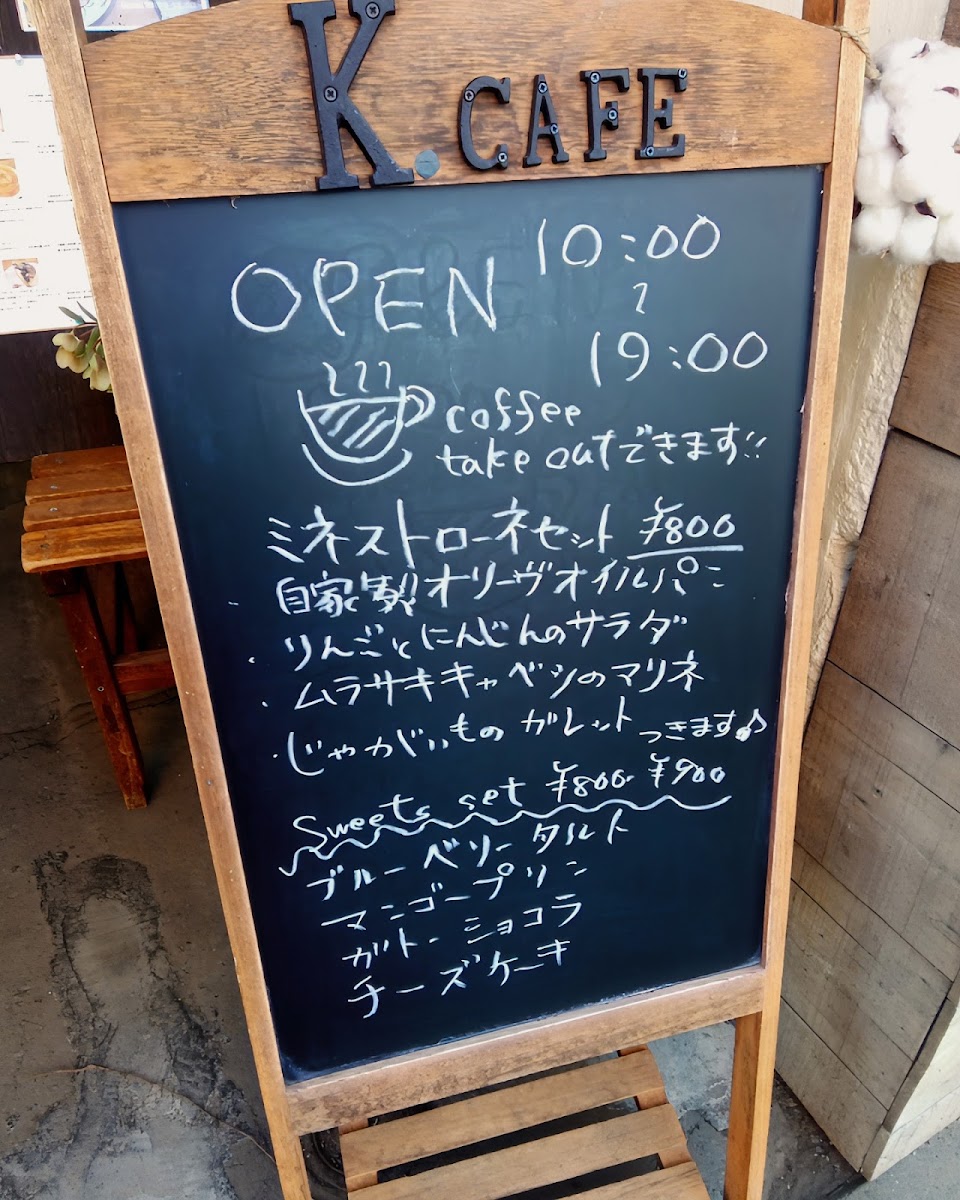 K. CAFE
OPEN 10:00
~
19:00
coffee
take outできます!!
ミネストローネセット ¥800
自家製オリーヴオイルパン
・りんごとにんじんのサラダ
・ムラサキキャベツのマリネ
・じゃがいものガレット つきます♪
Sweets set ¥800 ¥900
ブルーベリータルト
マンゴープリン
ガトーショコラ
チーズケーキ